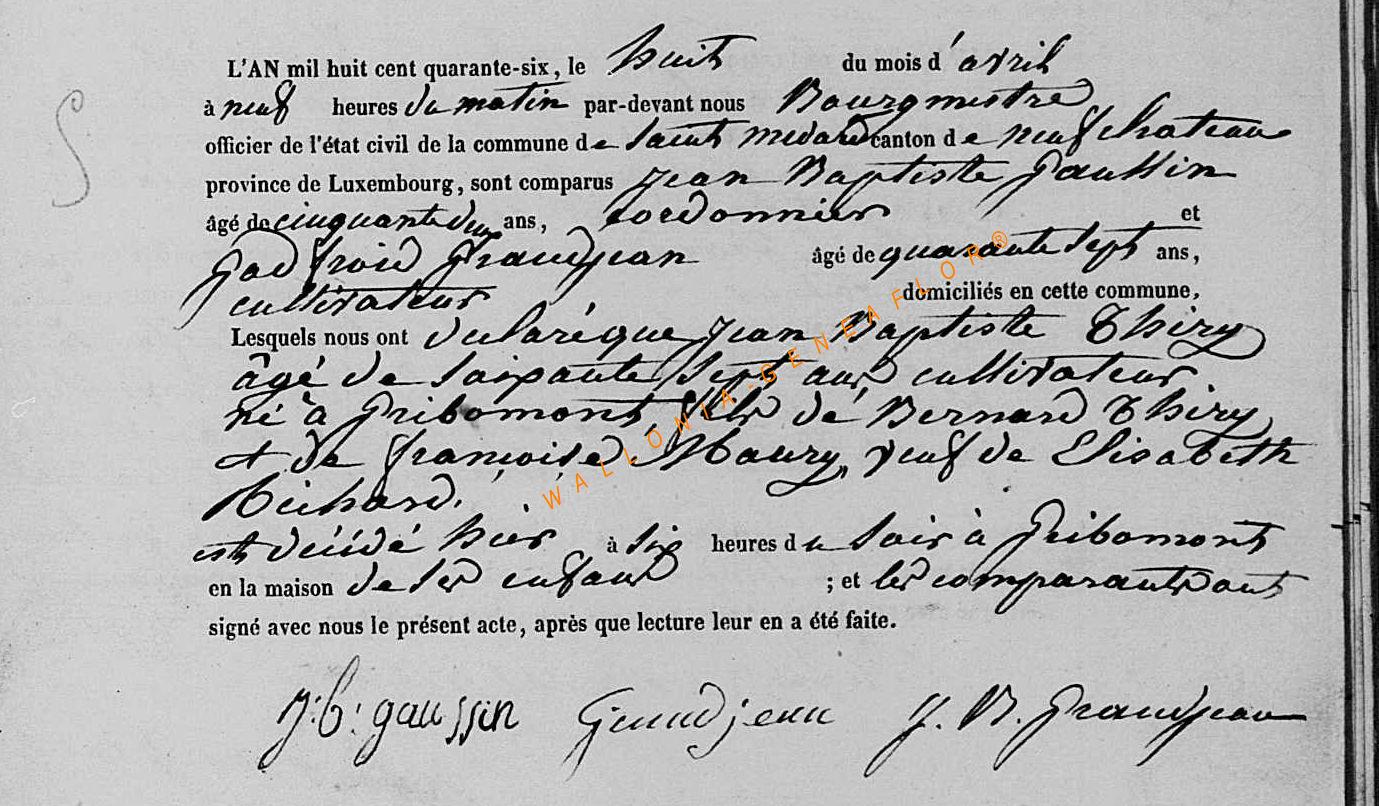 L'AN mil huit cent quarante-six, le huit du mois d'avril
à neuf heures du matin par-devant nous Bourgmestre
officier de l'état civil de la commune de Saint medard canton de neufchateau
province de Luxembourg, sont comparus Jean Baptiste Gaussin
âgé de cinquante deux ans, cordonnier et
Godfroid Grandjean âgé de quarante sept ans,
cultivateur domiciliés en cette commune,
Lesquels nous ont declaré que Jean Baptiste Thiry
âgé de soixante sept ans cultivateur
né à Gribomont, fils de Bernard Thiry
et de françoise Maury, veuf de Elisabeth
Richard.
est décédé hier à six heures du soir à Gribomont
en la maison de ses enfans ; et les comparants ont
signé avec nous le présent acte, après que lecture leur en a été faite.
J: b: gaussin Grandjean J. B. Grandjean
WALLONIA-GENEAFLOR®